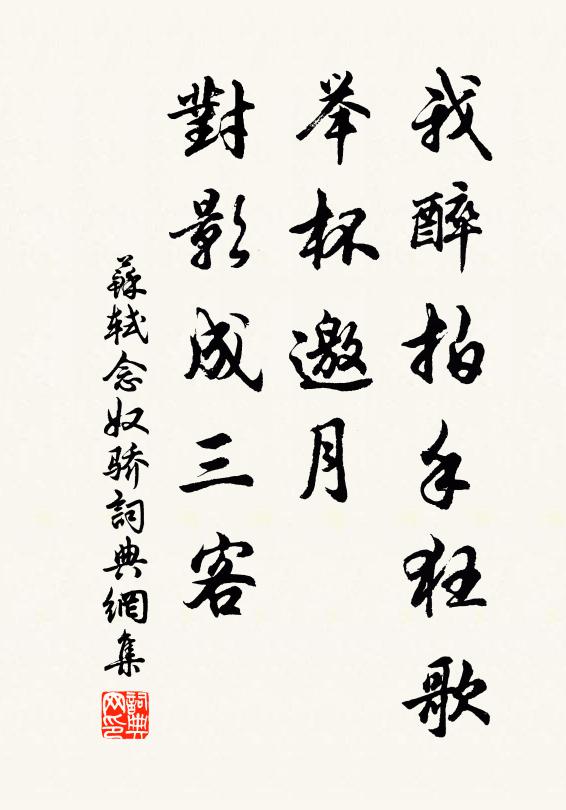 我醉拍手狂歌
举杯邀月
對影成三客
蘇軾念奴骄詞典網集
詞典网印